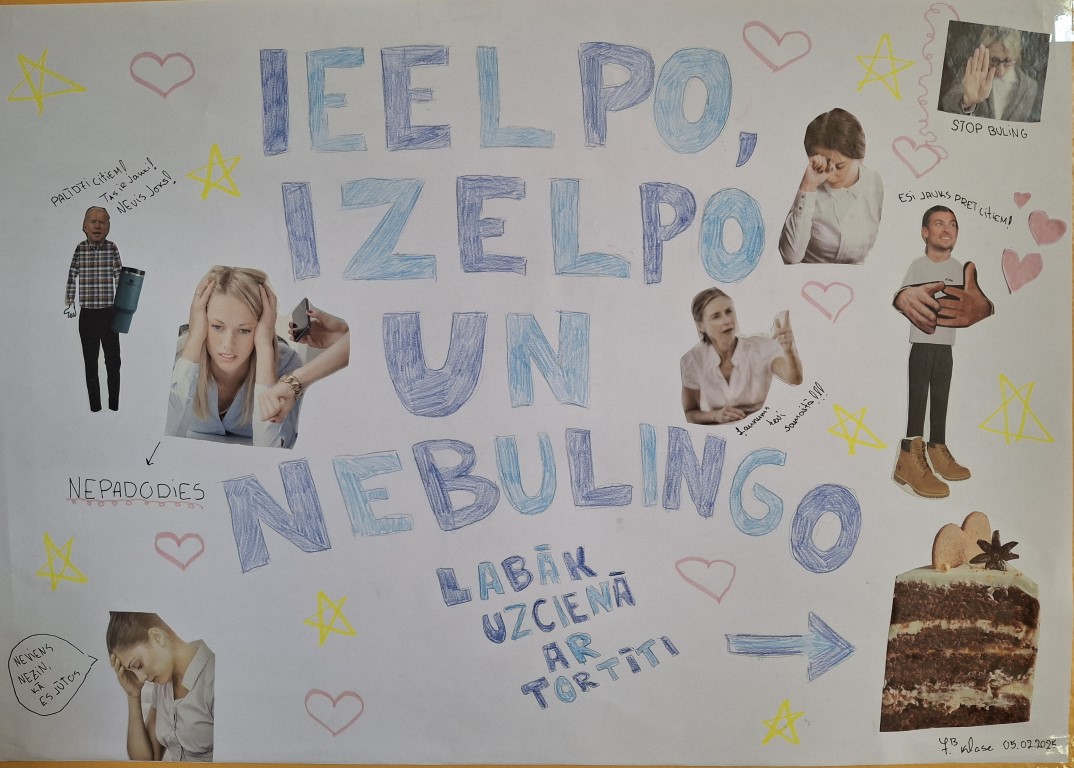 IEELPO,
IZELPO
UN
NEBULINGO
LABĀK
UZCIENĀ
AR
TORTĪTI
STOP BULING
PALĪDZI CITIEM!
Tas ir jauki!
NEVIS JOKS!
ESI JAUKS PRET CITIEM!
Ļaunums
tevi
samaitā!!!
NEPADODIES
NEVIENS
NEZIN,
KĀ
ES JŪTOS
7.B klase 05.02.2025